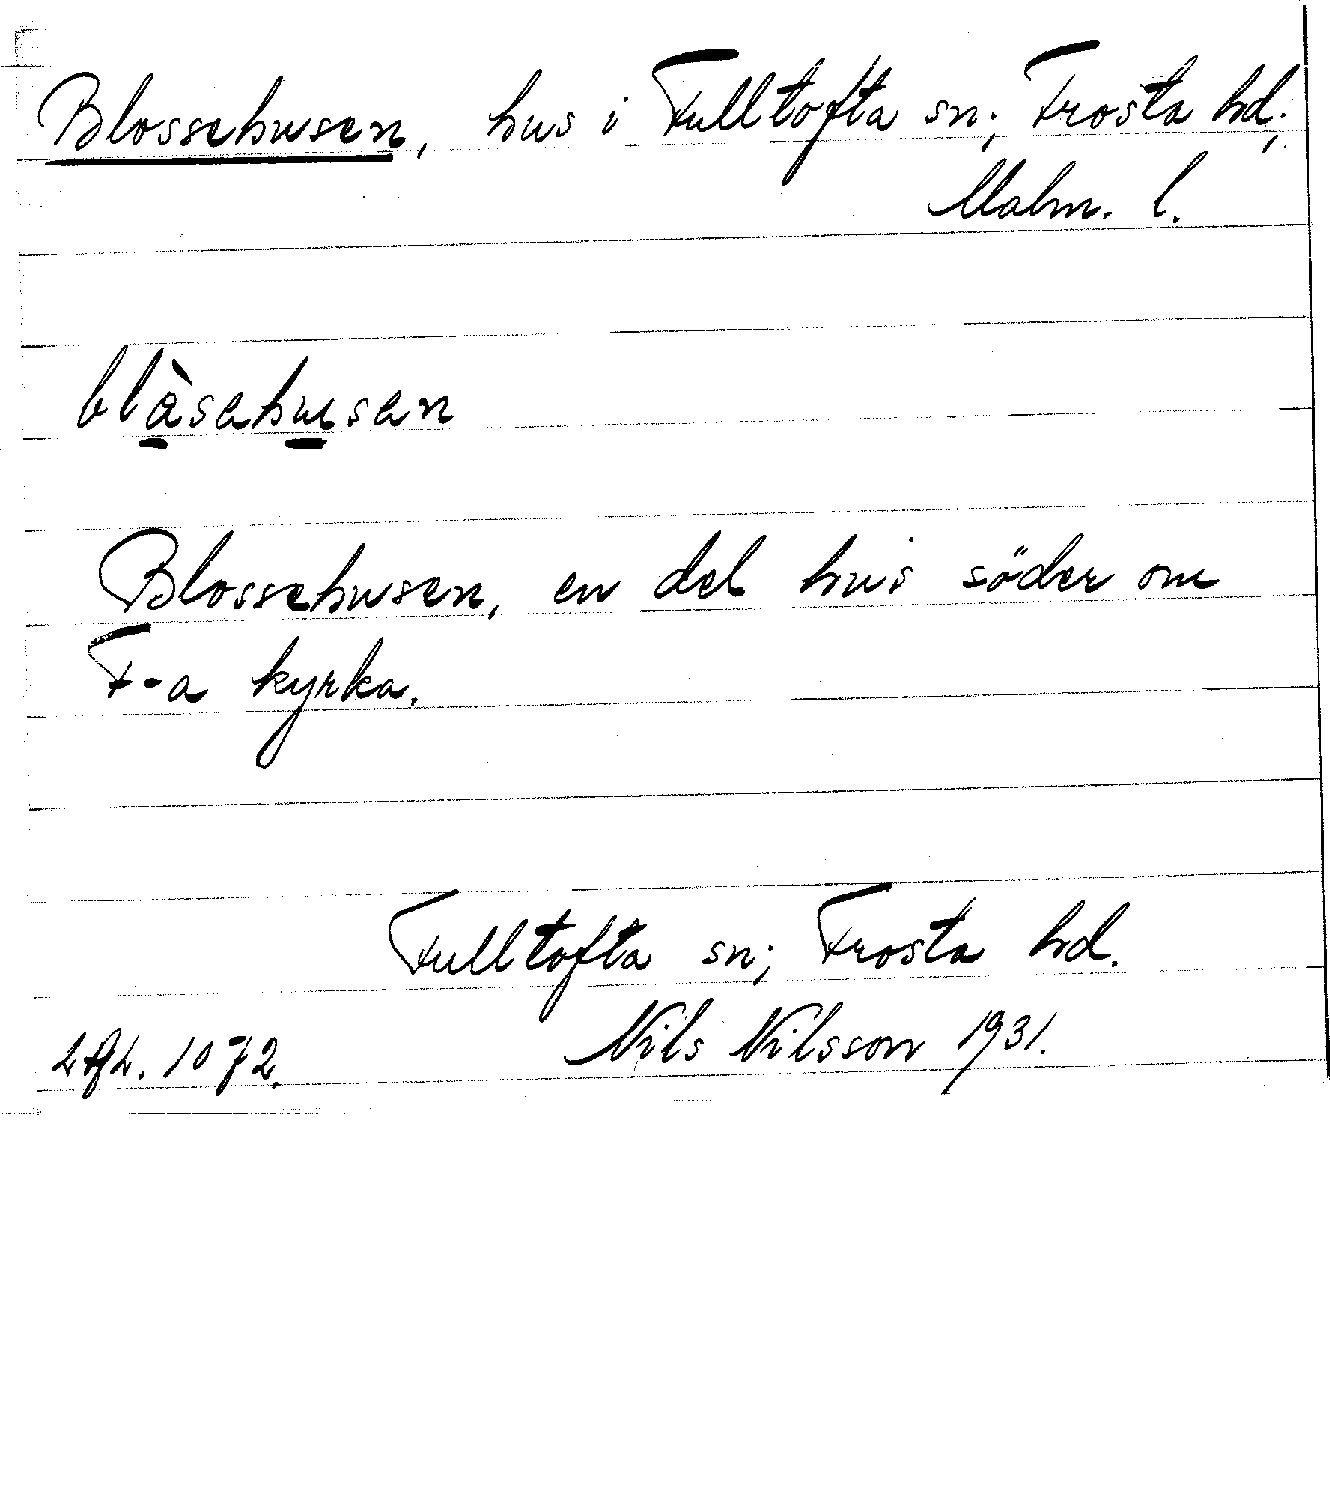 Blossehusen, hus i Fulltofta sn; Frosta hd;
Malm. l.
blàsehusen
Blossehusen, en del hus söder om
F-a kyrka.
Fulltofta sn; Frosta hd.
Nils Nilsson 1931.
1072.